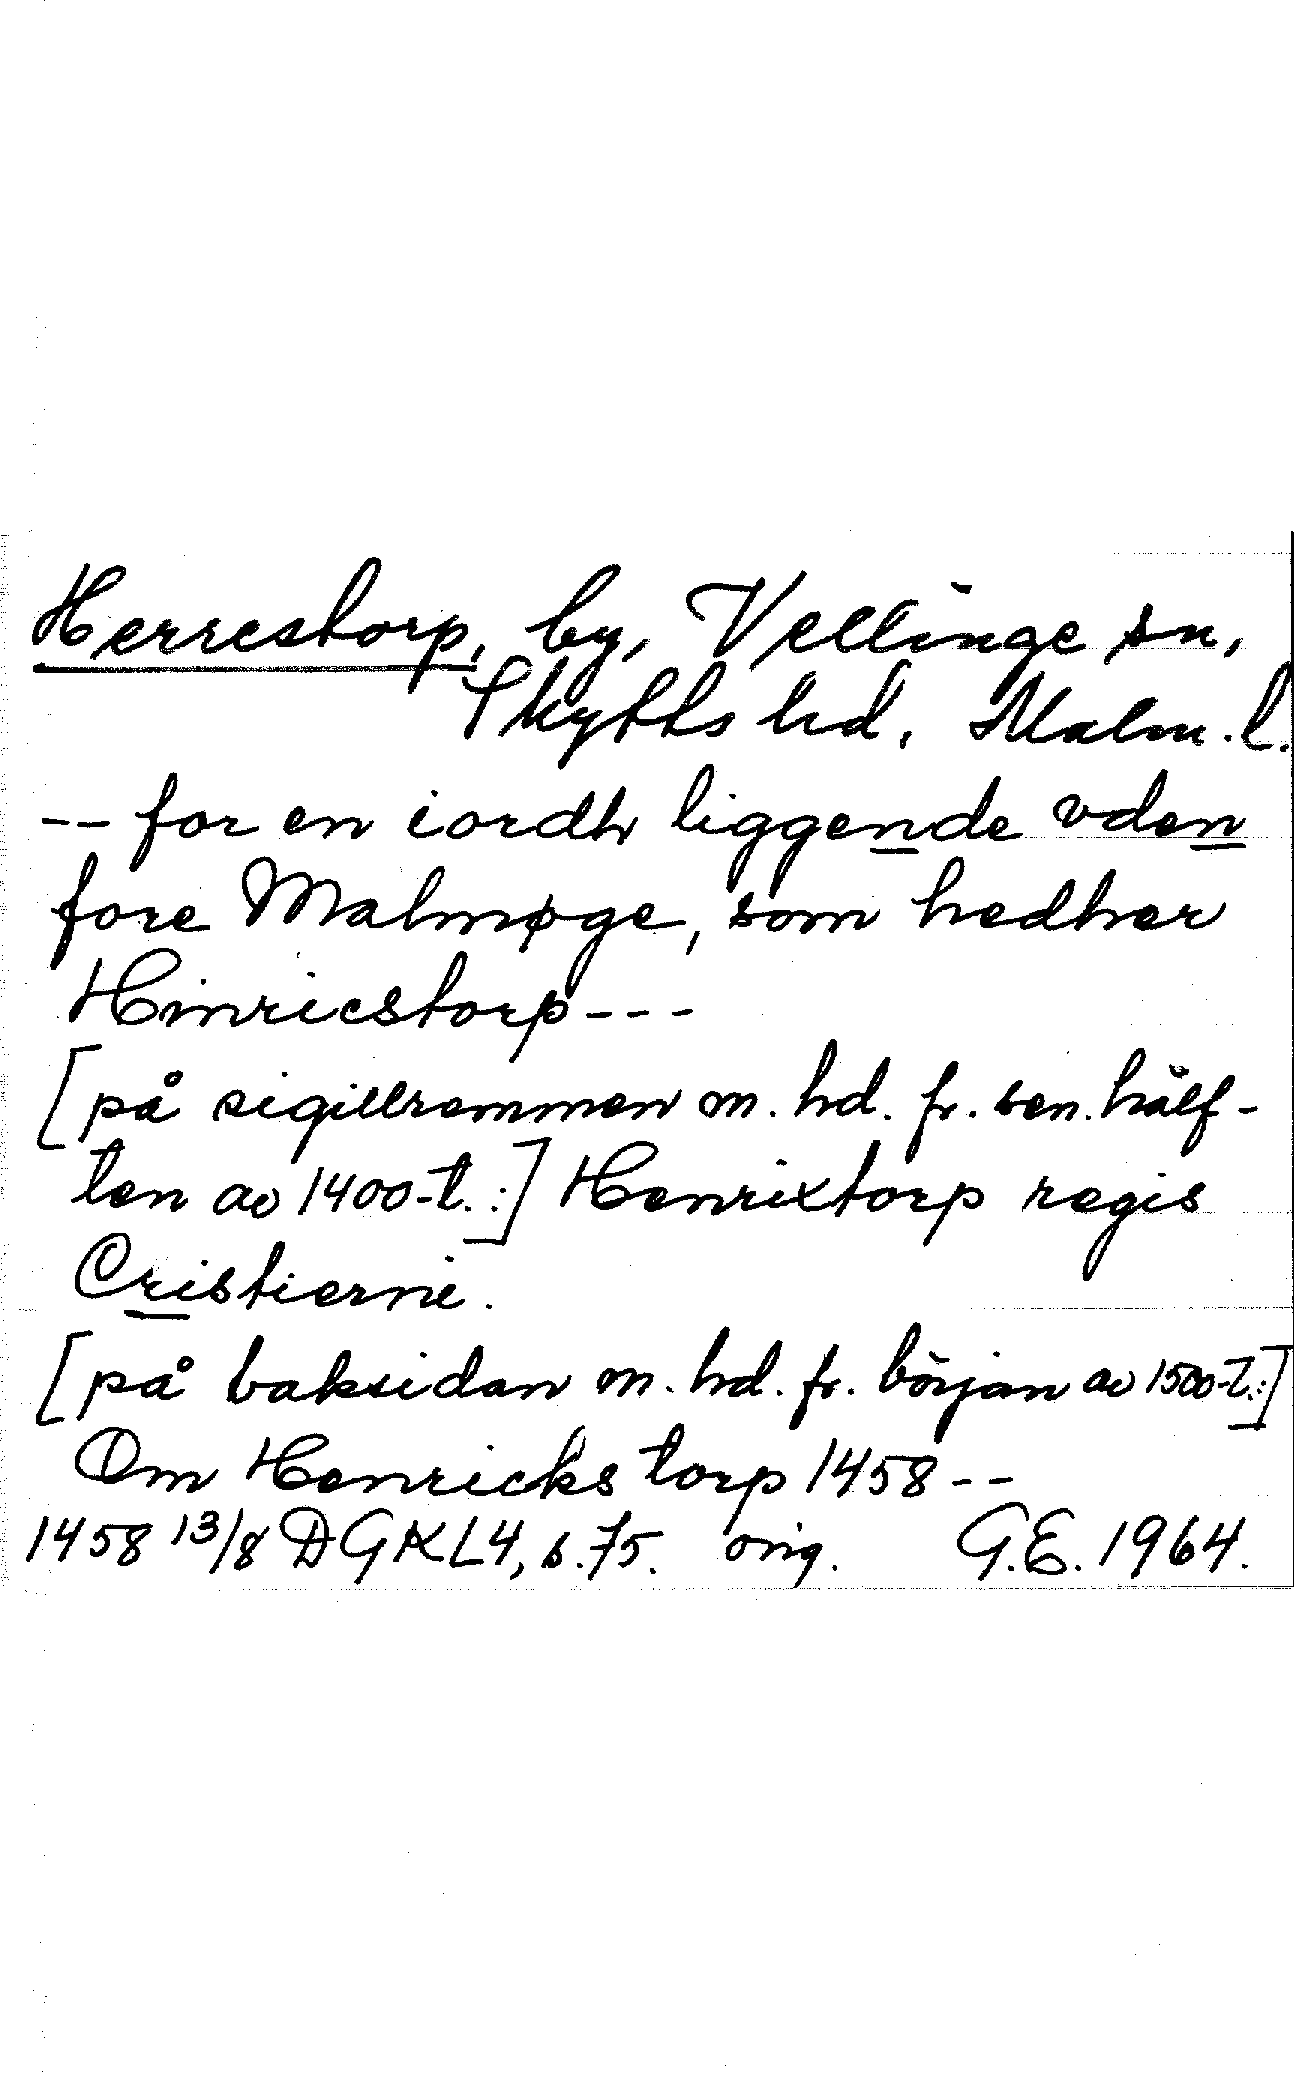 Herrestorp, by, Vellinge sn,
Skytts hd, Malm. l.
-- for en iordh liggende vden
fore Malmøge, som hedher
Hinricstorp---
[på sigillremmen m. hd. fr. sen. hälf-
ten av 1400-t.:] Henrixtorp regis
Cristierni.
[på baksidan m. hd. fr. början av 1500-t.:]
Om Henricks torp 1458--
1458 13/8 DGKL4, s. 75. orig. G.E. 1964.